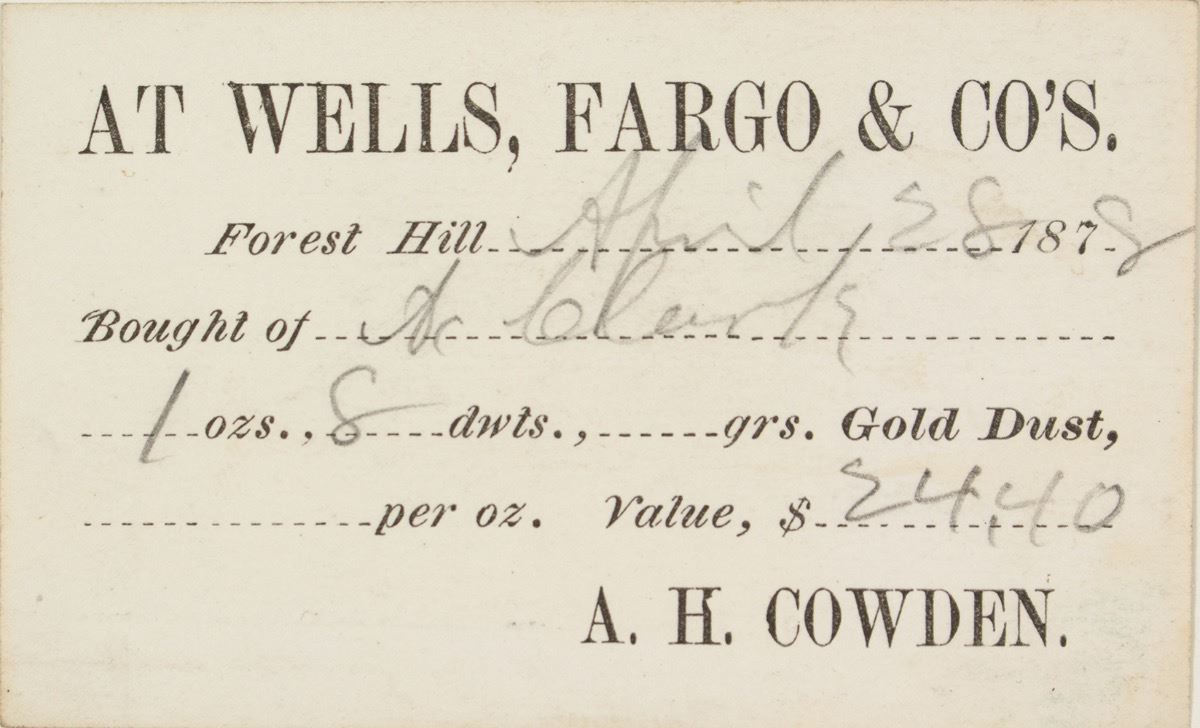 AT WELLS, FARGO & CO'S.
Forest Hill April 28 1878
Bought of A Clark
1 ozs., 8 dwts., grs. Gold Dust,
per oz. Value, $ 24.40
A. H. COWDEN.